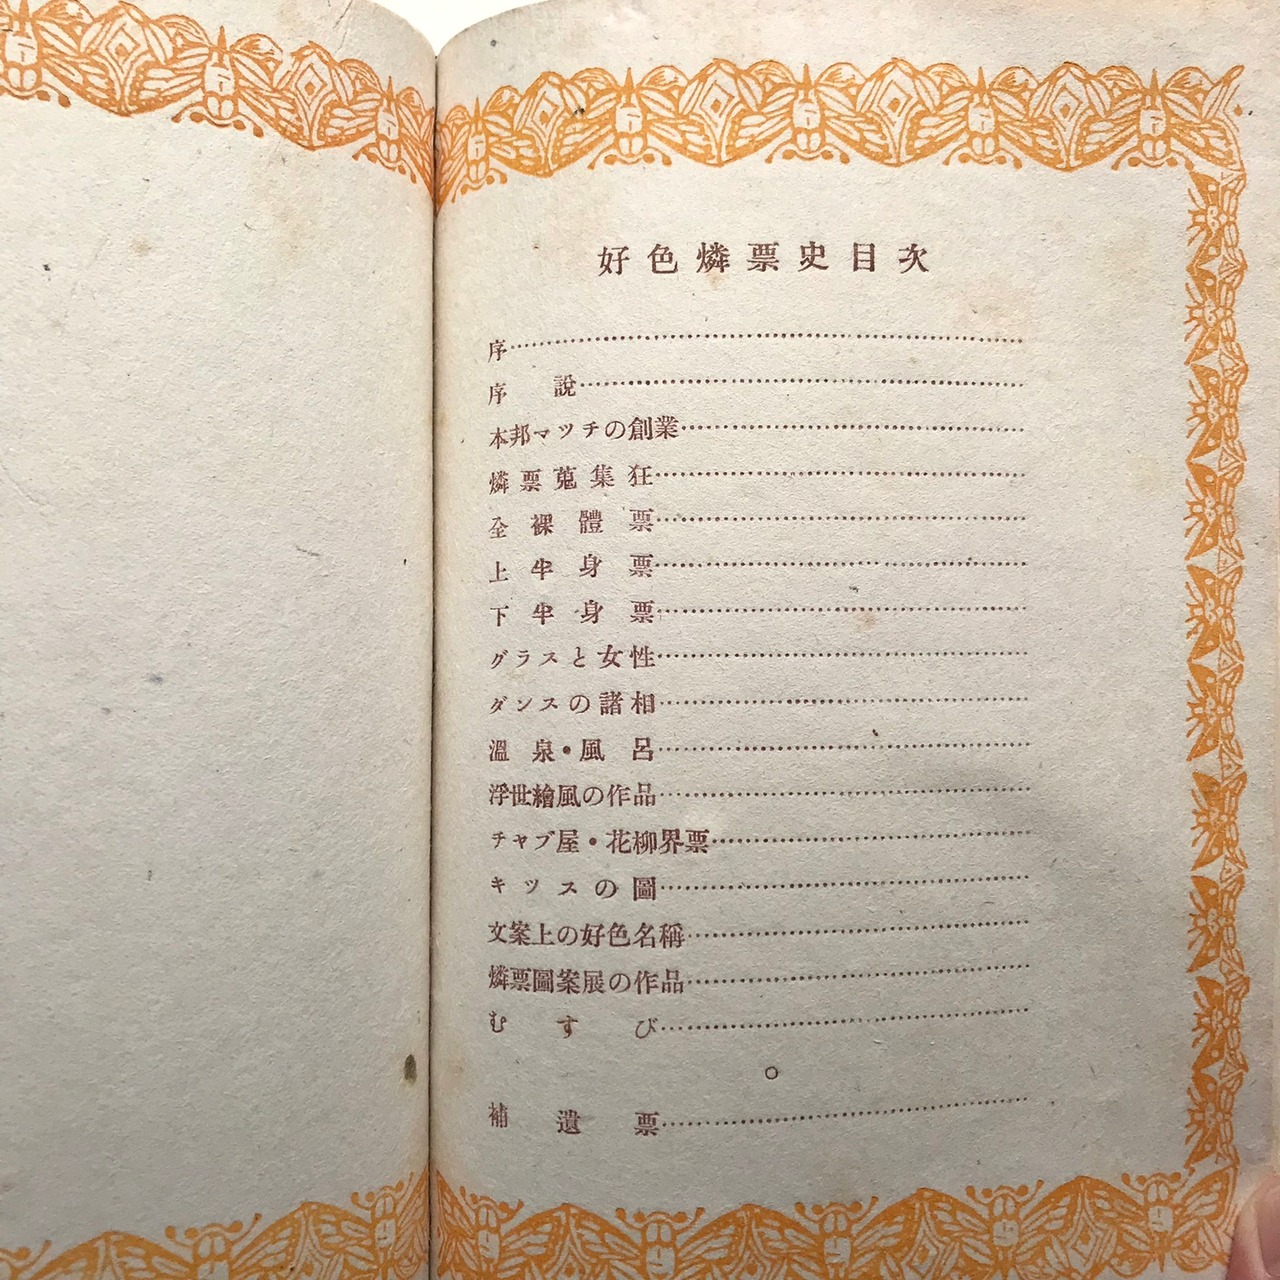 好色燐票史目次
序
序説
本邦マツチの創業
燐票蒐集狂
全裸體票
上半身票
下半身票
グラスと女性
ダンスの諸相
溫泉・風呂
浮世繪風の作品
チャブ屋・花柳界票
キツスの圖
文案上の好色名稱
燐票圖案展の作品
むすび
補遺票